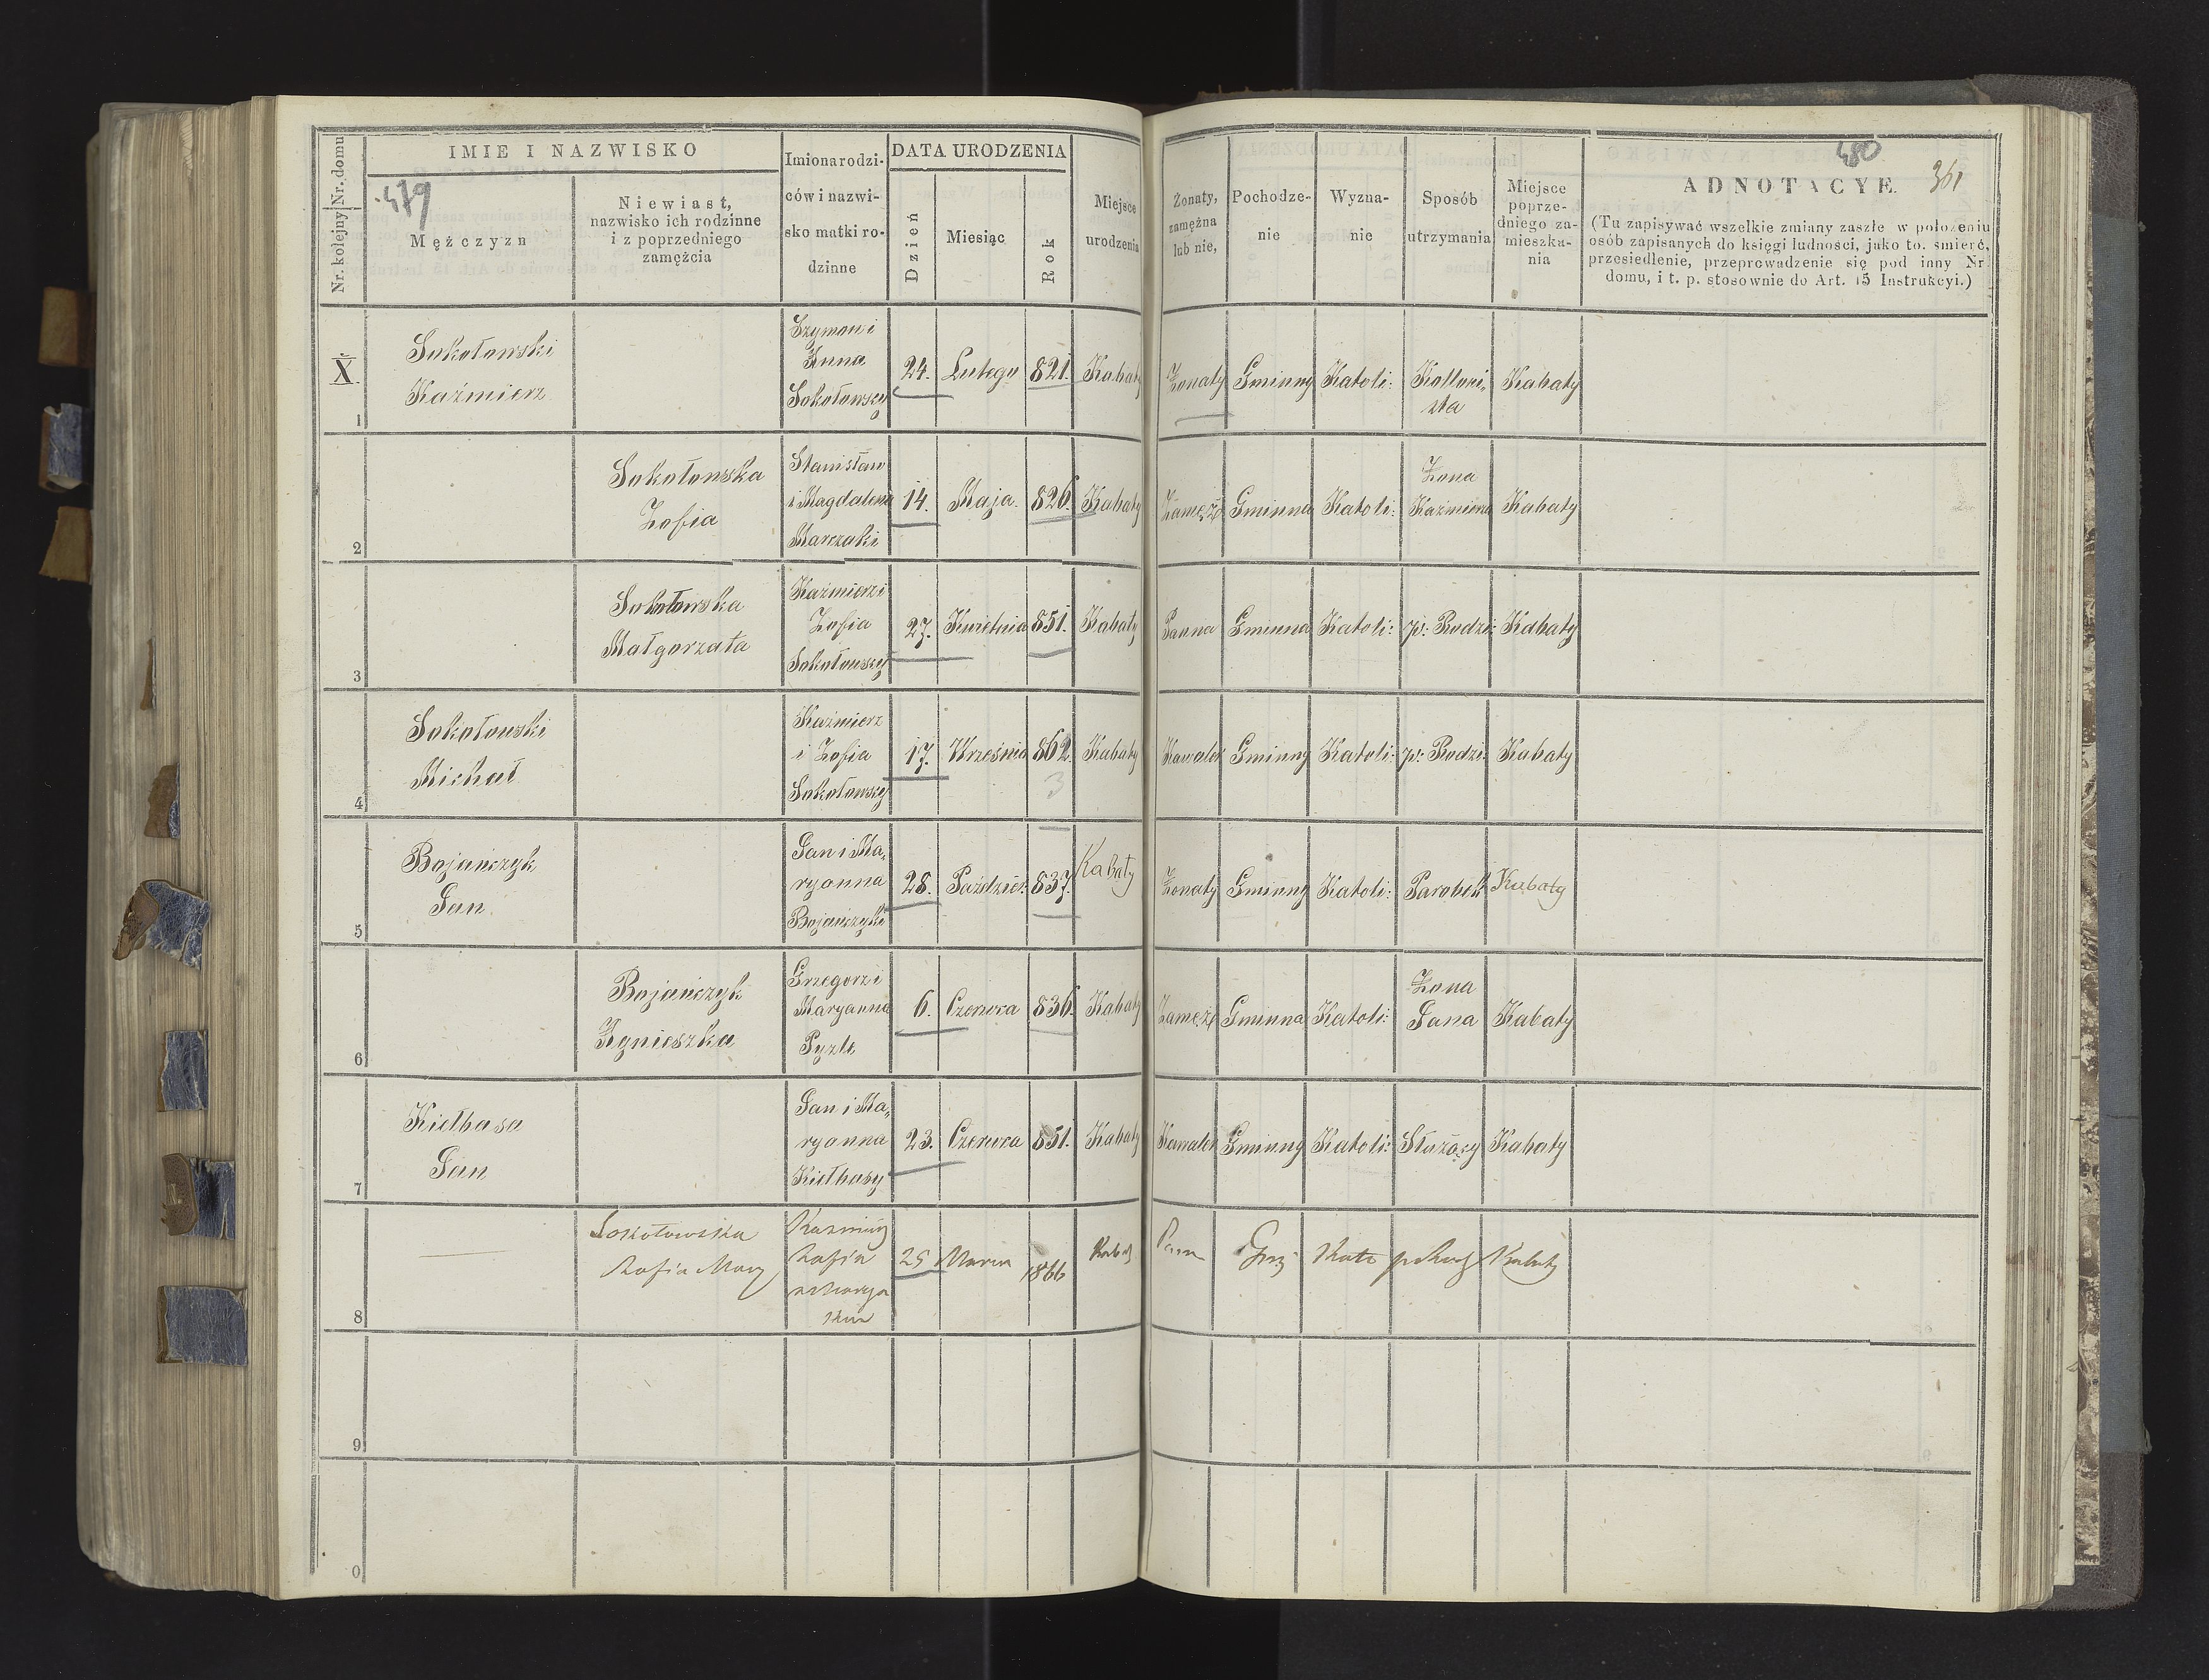 Nr. kolejny Nr. domu
IMIE I NAZWISKO
479
Mężczyzn
Niewiast,
nazwisko ich rodzinne
i z poprzedniego
zamężcia
Imiona rodzi-
ców i nazwi-
sko matki ro-
dzinne
DATA URODZENIA
Dzień
Miesiąc
Rok
Miejsce
urodzenia
Żonaty,
zamężna
lub nie,
Pochodze-
nie
Wyzna-
nie
Sposób
utrzymania
Miejsce
poprze-
dniego za-
mieszka-
nia
480
361
ADNOTACYE.
(Tu zapisywać wszelkie zmiany zaszłe w położeniu
osób zapisanych do księgi ludności, jako to. śmierć,
przesiedlenie, przeprowadzenie się pod inny Nr
domu, i t. p. stosownie do Art. 15 Instrukcyi.)
X
1
Sokołowski
Kaźmierz
Szymon i
Anna
Sokołowscy
24. Lutego 821. Kabaty
Żonaty Gminny Katoli: Kabaty
2
Sokołowska
Zofia
Stanisław
i Magdalena
Marczaki
14. Maja. 826. Kabaty
Zamężą Gminna Katoli: Żona
Kaźmierza Kabaty
3
Sokołowska
Małgorzata
Kaźmierz i
Zofia
Sokołowscy
27. Kwietnia 851. Kabaty
Panna Gminna Katoli: p: Rodzi: Kabaty
4
Sokołowski
Michał
Kaźmierz
i Zofia
Sokołowscy
17. Września 862. Kabaty
3
Kawaler Gminny Katoli: p: Rodzi: Kabaty
5
Bojańczyk
Jan
Jan i Ma,
ryanna
Bojańczyki
28. Paździer: 837. Kabaty
Żonaty Gminny Katoli: Parobek Kabaty
6
Bojańczyk
Agnieszka
Grzegorz i
Maryanna
Pyzle
6. Czerwca 836. Kabaty
Zamężą Gminna Katoli: Żona
Jana Kabaty
7
Kiełbasa
Jan
Jan i Ma,
ryanna
Kiełbasy
23. Czerwca 851. Kabaty
Kawaler Gminny Katoli: Służący Kabaty
8
Sokołowska
Zofia
Zofia
25 Marca 1866
Kabaty
9
0